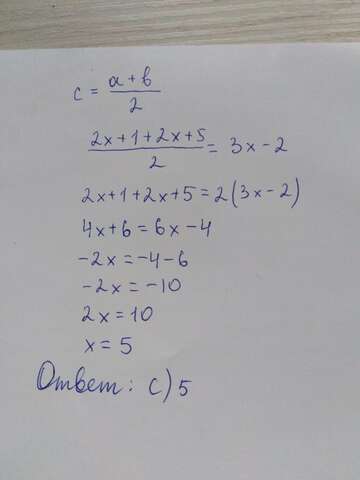 c = a + b / 2
2x+1+2x+5 / 2 = 3x-2
2x+1+2x+5=2(3x-2)
4x+6=6x-4
-2x=-4-6
-2x=-10
2x=10
x=5
Ответ: с) 5